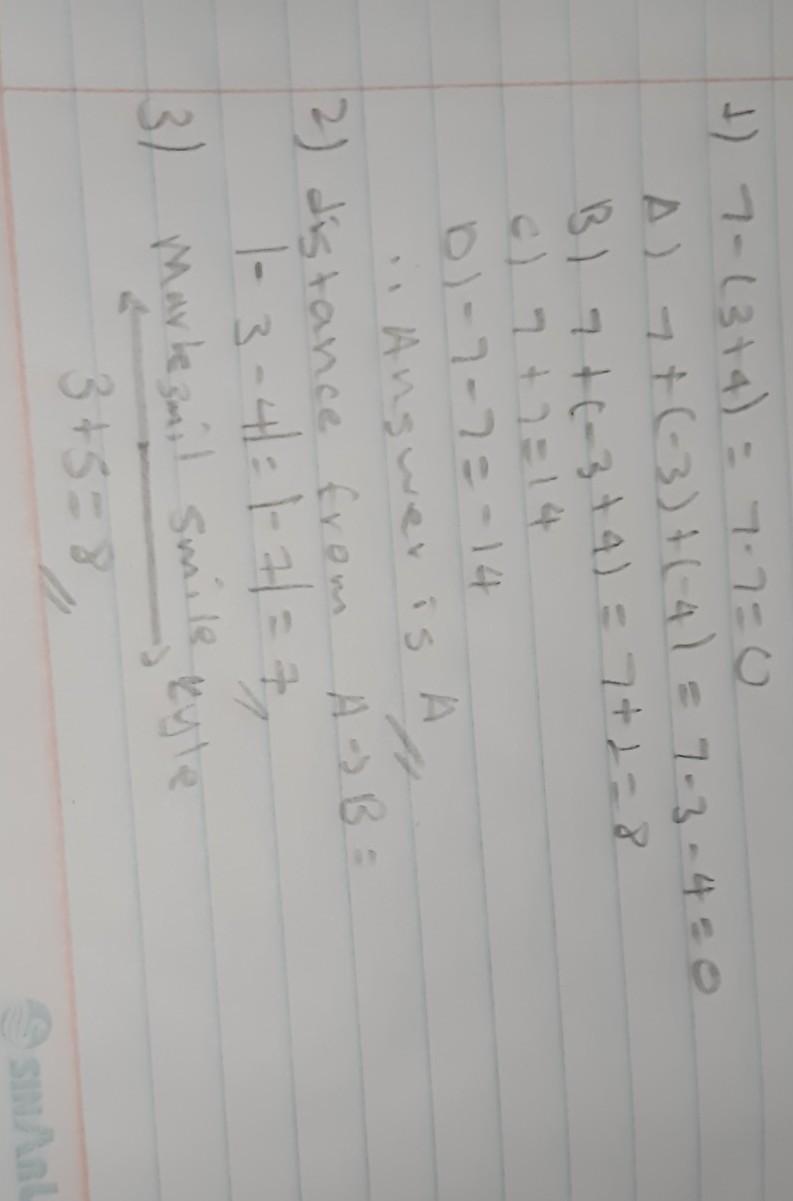 1) 7-(3+4) = 7-7=0
A) 7+(-3)+(-4) = 7-3-4=0
B) 7+(-3+4) = 7+1=8
C) 7+7=14
D) -7-7=-14
∴ Answer is A
2) distance from A→B =
|-3-4|=|-7|=7
3) smile kyle
3+5=8